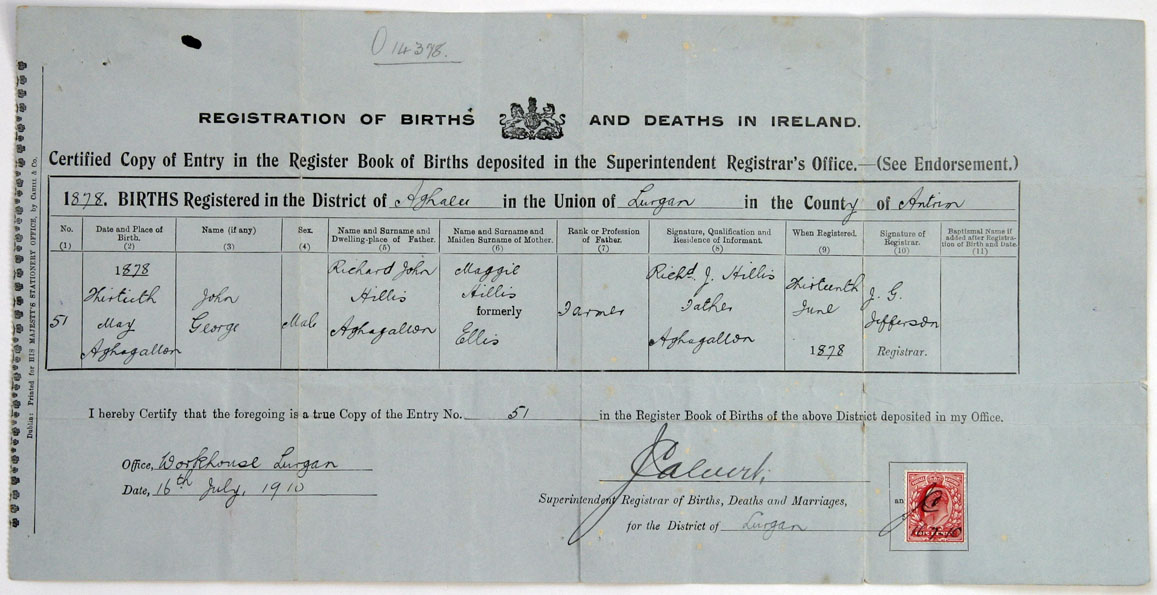 O 14398.
REGISTRATION OF BIRTHS AND DEATHS IN IRELAND.
Certified Copy of Entry in the Register Book of Births deposited in the Superintendent Registrar's Office.—(See Endorsement.)
1878. BIRTHS Registered in the District of Aghalee in the Union of Lurgan in the County of Antrim
No. (1)
Date and Place of Birth. (2)
Name (if any) (3)
Sex. (4)
Name and Surname and Dwelling-place of Father. (5)
Name and Surname and Maiden Surname of Mother. (6)
Rank or Profession of Father. (7)
Signature, Qualification and Residence of Informant. (8)
When Registered. (9)
Signature of Registrar. (10)
Baptismal Name if added after Registration of Birth and Date. (11)
51
1878 Thirtieth May Aghagallon
John George
Male
Richard John Hillis Aghagallon
Maggie Hillis formerly Ellis
Farmer
Richd. J. Hillis Father Aghagallon
Thirteenth June 1878
J. G. Jefferson Registrar.
I hereby Certify that the foregoing is a true Copy of the Entry No. 51 in the Register Book of Births of the above District deposited in my Office.
Office, Workhouse Lurgan
Date, 16th July, 1910
J Calvert.
Superintendent Registrar of Births, Deaths and Marriages,
for the District of Lurgan
Dublin: Printed for HIS MAJESTY'S STATIONERY OFFICE, by CAHILL & Co.